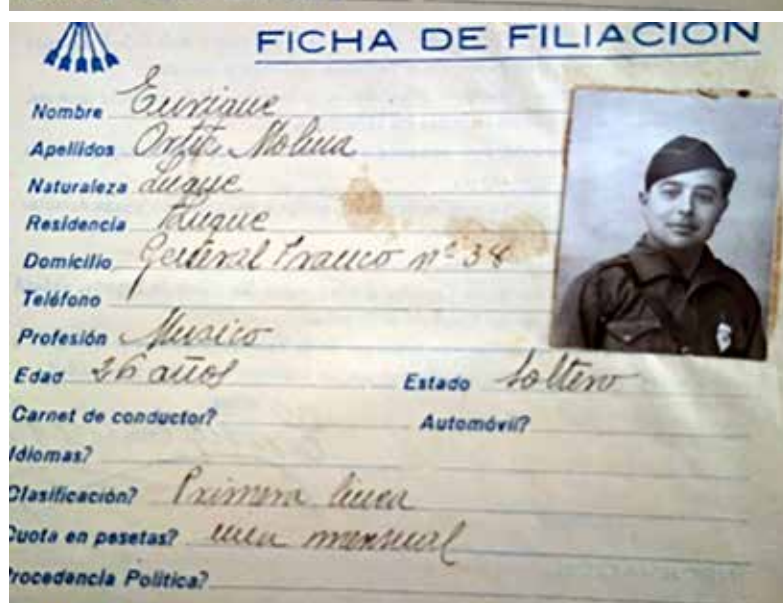 FICHA DE FILIACION
Nombre Enrique
Apellidos Ortiz Molina
Naturaleza Luque
Residencia Luque
Domicilio General Franco nº 38
Teléfono
Profesión Musico
Edad 26 años Estado Soltero
Carnet de conductor? Automóvil?
Idiomas?
Clasificación? Primera linea
Cuota en pesetas? una mensual
Procedencia Política?